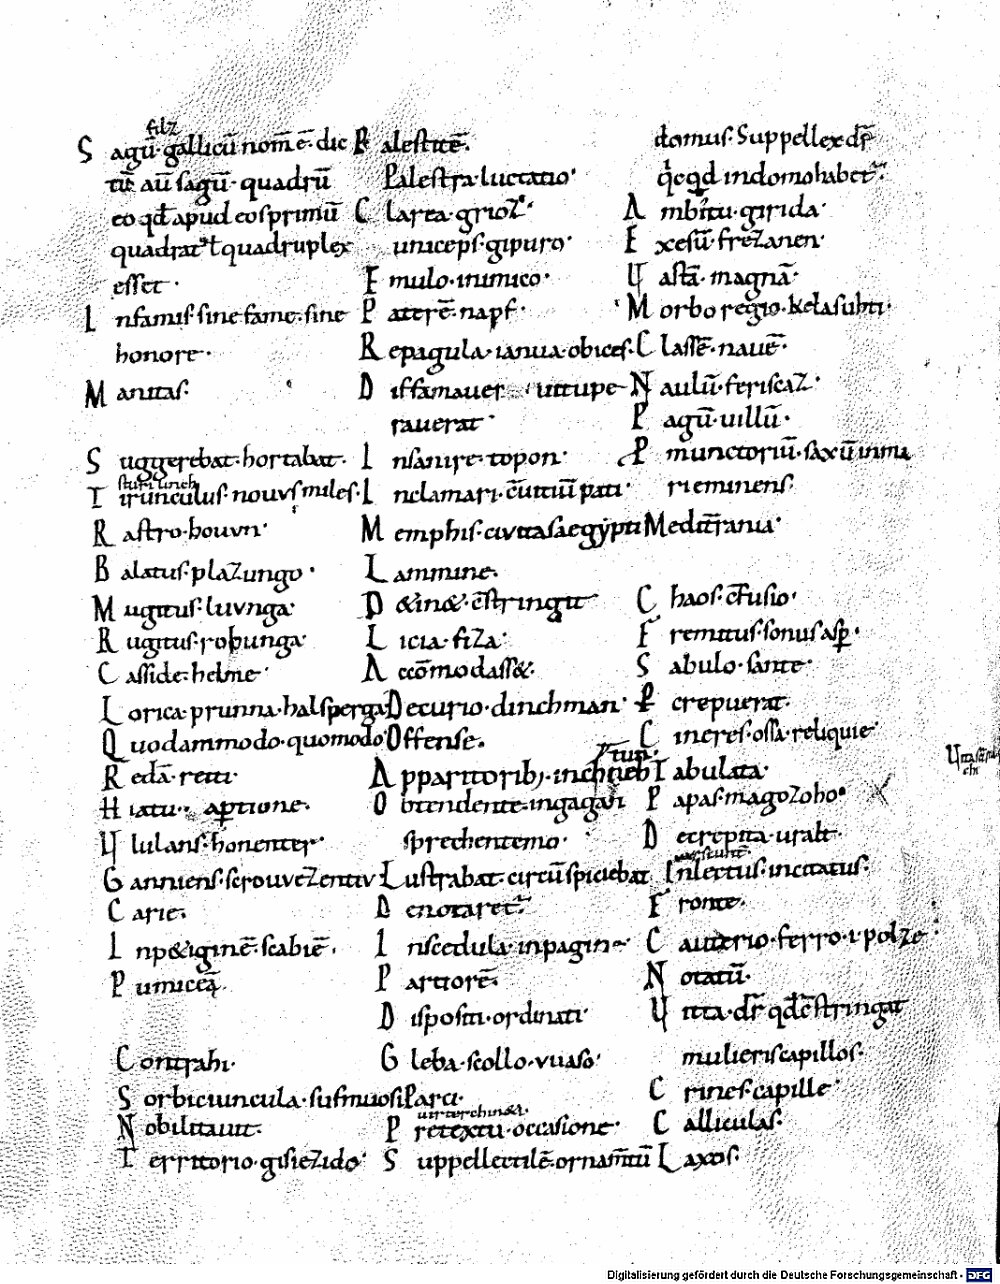 filz
S agū· gallicū nom̄ ē· dic
tū· aū sagū· quadrū
eo qđ apud eos primū
quadratū ł quadruplex
esset·
I nfamis· sine fame· sine
honore·
M anitas·
S uggerebat· hortabat·
sturilinch
T irunculus· nouus miles·
R astro· houvn·
B alatus· plazungo·
M ugitus· luvnga·
R ugitus· rohunga·
C asside· helme·
L orica· prunna· halsperga
Q uodammodo· quomodo·
R edā· reiti·
H iatu· aptione·
U lulans· honenter·
G anniens· scrouvezentiv
C arie·
I np&iginē· scabiē·
P umiceā·
C ontrahi·
S orbiciuncula· sufmuosi
N obilitauit·
T erritorio· gisiezido·
P alesticē·
Palestra· luctatio·
C larea· grioz·
uniceps· gipuro·
E mulo· inimico·
P aterē· napf·
R epagula· ianua obices·
D iffamauer uitupe
rauerat·
I nsanire· topon·
I nclamari· c̄uitiū pati·
M emphis· ciuitas aegypti
L ammine·
D &in&· c̄stringit
L icia· fiza·
A ccōmodass&·
D ecurio· dinchman·
Offense·
A pparitorib;· inchneh
O btendente· ingagan
sprechentemo·
L ustrabat· circūspiciebat
D enotaret·
I nscedula· inpagine
P artiorē·
D ispositi· ordinati·
G leba· scollo· vuaso·
Parci·
P retextu· occasione·
S uppellectilē· ornam̄tū
domus· Suppellex dr̄
q̇cqd indomo habet·
A mbitu· girida·
E xesū· frezanen·
U astā· magnā·
M orbo regio· kelasuhti·
C lassē· nauē·
N aulū· feriscaz·
P agū· uillū·
P munctoriū· saxū inma
ri eminens·
Medit̄rania·
C haos· c̄fusio·
F remitus· sonus asp·
S abulo· sante·
P crepuerat·
C ineres· ossa· reliquie·
T abulata·
P apas· magozoho·
D ecrepita· uralt·
I nlectus· incitatus·
F ronte·
C auterio· ferro· ı· polze
N otatū·
U itta· dr̄ qđ c̄stringat
mulieris capillos·
C rines· capille·
C alliculas·
L axos·
Digitalisierung gefördert durch die Deutsche Forschungsgemeinschaft - DFG